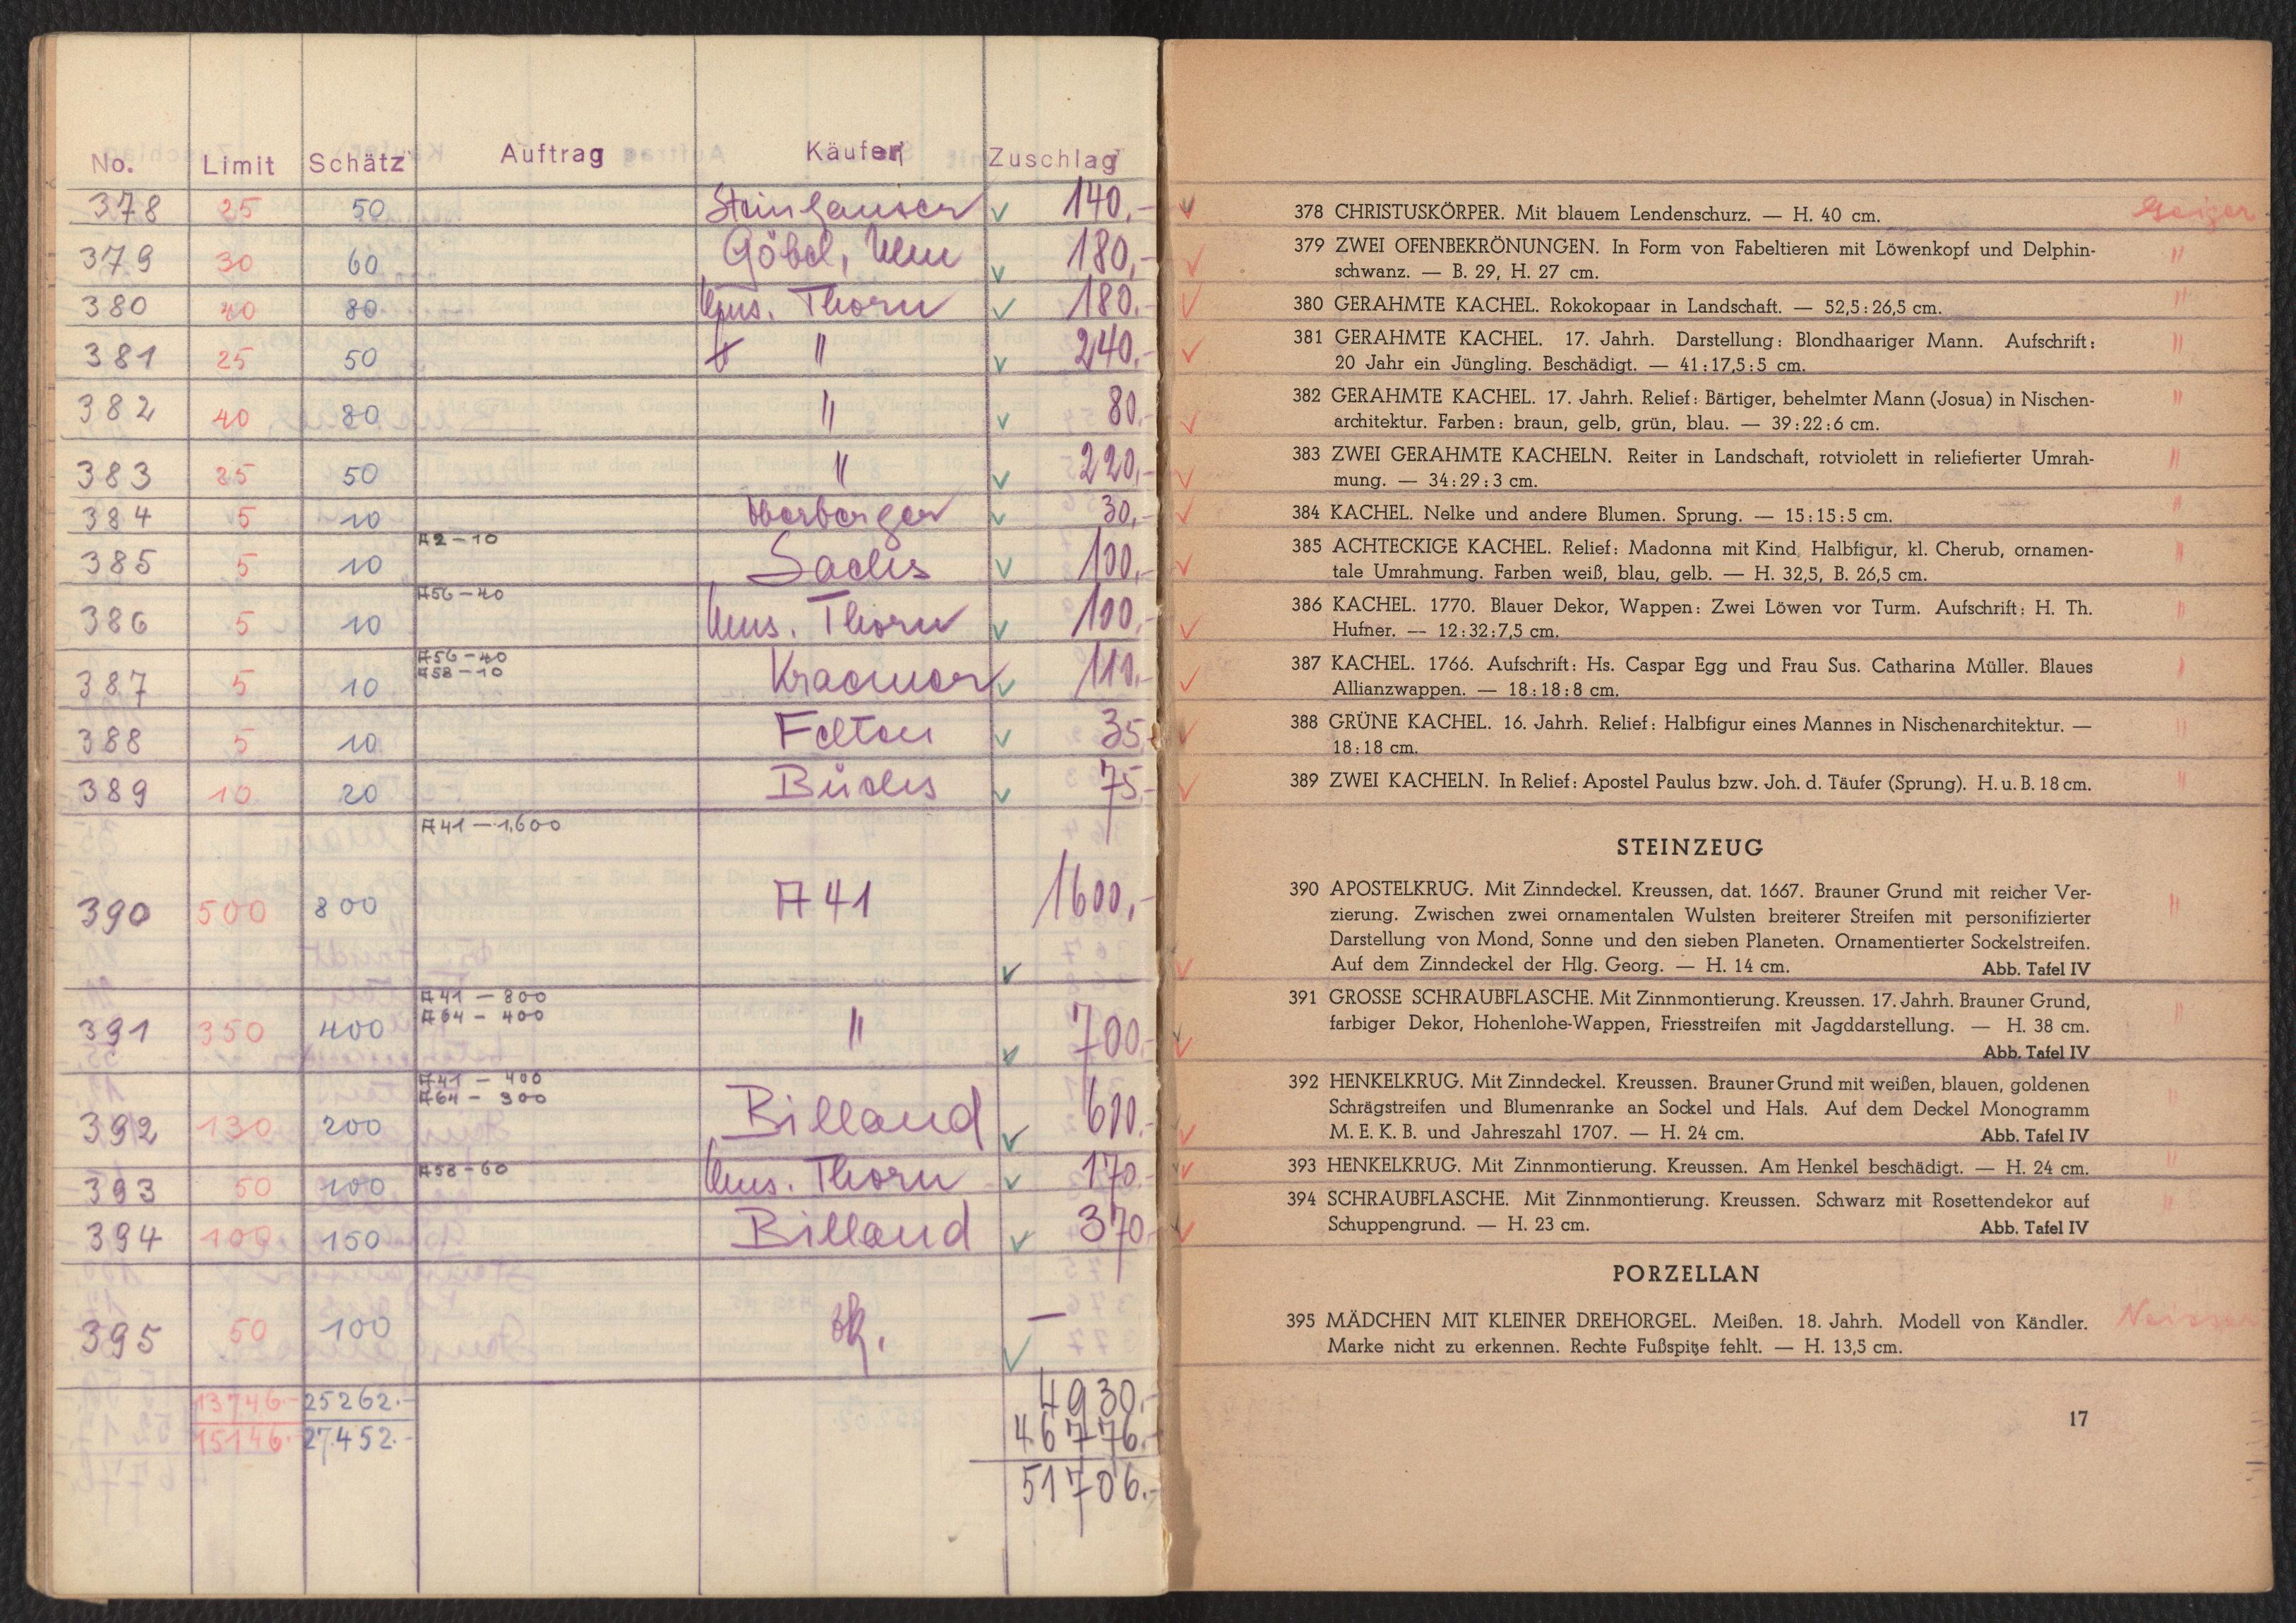 No. Limit Schätz Auftrag Käufer Zuschlag
378 25 50 Steinhauser 140.-
379 30 60 Göbel, Ulm 180.-
380 40 80 Mus. Thorn 180.-
381 25 50 " 240.-
382 40 80 " 80.-
383 25 50 " 220.-
384 5 10 Oberberger 30.-
A2 - 10
385 5 10 Sachs 100.-
A56 - 40
386 5 10 Mus. Thorn 100.-
A56 - 40
A58 - 10
387 5 10 Kraemer 110.-
388 5 10 Felten 35.-
389 10 20 Büchs 75.-
A41 - 1.600
390 500 800 A 41 1600.-
A41 - 800
A64 - 400
391 350 400 " 700.-
A41 - 400
A64 - 300
392 130 200 Billand 610.-
A58 - 60
393 50 100 Mus. Thorn 170.-
394 100 150 Billand 370.-
395 50 100 —
13746.- 25262.- 4930.-
15146.- 27.452.- 46776.-
51706.-
378 CHRISTUSKÖRPER. Mit blauem Lendenschurz. — H. 40 cm. Geiger
379 ZWEI OFENBEKRÖNUNGEN. In Form von Fabeltieren mit Löwenkopf und Delphin- "
schwanz. — B. 29, H. 27 cm.
380 GERAHMTE KACHEL. Rokokopaar in Landschaft. — 52,5 : 26,5 cm. "
381 GERAHMTE KACHEL. 17. Jahrh. Darstellung: Blondhaariger Mann. Aufschrift: "
20 Jahr ein Jüngling. Beschädigt. — 41 : 17,5 : 5 cm.
382 GERAHMTE KACHEL. 17. Jahrh. Relief: Bärtiger, behelmter Mann (Josua) in Nischen- "
architektur. Farben: braun, gelb, grün, blau. — 39 : 22 : 6 cm.
383 ZWEI GERAHMTE KACHELN. Reiter in Landschaft, rotviolett in reliefierter Umrah- "
mung. — 34 : 29 : 3 cm.
384 KACHEL. Nelke und andere Blumen. Sprung. — 15 : 15 : 5 cm. "
385 ACHTECKIGE KACHEL. Relief: Madonna mit Kind, Halbfigur, kl. Cherub, ornamen- "
tale Umrahmung. Farben weiß, blau, gelb. — H. 32,5, B. 26,5 cm.
386 KACHEL. 1770. Blauer Dekor, Wappen: Zwei Löwen vor Turm. Aufschrift: H. Th. "
Hufner. — 12 : 32 : 7,5 cm.
387 KACHEL. 1766. Aufschrift: Hs. Caspar Egg und Frau Sus. Catharina Müller. Blaues "
Allianzwappen. — 18 : 18 : 8 cm.
388 GRÜNE KACHEL. 16. Jahrh. Relief: Halbfigur eines Mannes in Nischenarchitektur. — "
18 : 18 cm.
389 ZWEI KACHELN. In Relief: Apostel Paulus bzw. Joh. d. Täufer (Sprung). H. u. B. 18 cm. "
STEINZEUG
390 APOSTELKRUG. Mit Zinndeckel. Kreussen, dat. 1667. Brauner Grund mit reicher Ver- "
zierung. Zwischen zwei ornamentalen Wulsten breiterer Streifen mit personifizierter
Darstellung von Mond, Sonne und den sieben Planeten. Ornamentierter Sockelstreifen.
Auf dem Zinndeckel der Hlg. Georg. — H. 14 cm. Abb. Tafel IV
391 GROSSE SCHRAUBFLASCHE. Mit Zinnmontierung. Kreussen. 17. Jahrh. Brauner Grund, "
farbiger Dekor, Hohenlohe-Wappen, Friesstreifen mit Jagddarstellung. — H. 38 cm.
Abb. Tafel IV
392 HENKELKRUG. Mit Zinndeckel. Kreussen. Brauner Grund mit weißen, blauen, goldenen "
Schrägstreifen und Blumenranke an Sockel und Hals. Auf dem Deckel Monogramm
M. E. K. B. und Jahreszahl 1707. — H. 24 cm. Abb. Tafel IV
393 HENKELKRUG. Mit Zinnmontierung. Kreussen. Am Henkel beschädigt. — H. 24 cm. "
394 SCHRAUBFLASCHE. Mit Zinnmontierung. Kreussen. Schwarz mit Rosettendekor auf "
Schuppengrund. — H. 23 cm. Abb. Tafel IV
PORZELLAN
395 MÄDCHEN MIT KLEINER DREHORGEL. Meißen. 18. Jahrh. Modell von Kändler.
Marke nicht zu erkennen. Rechte Fußspitze fehlt. — H. 13,5 cm.
17